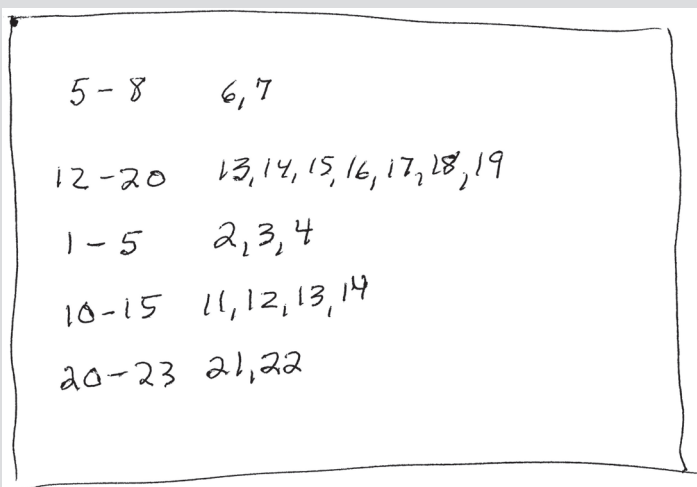 5-8 6,7
12-20 13,14,15,16,17,18,19
1-5 2,3,4
10-15 11,12,13,14
20-23 21,22